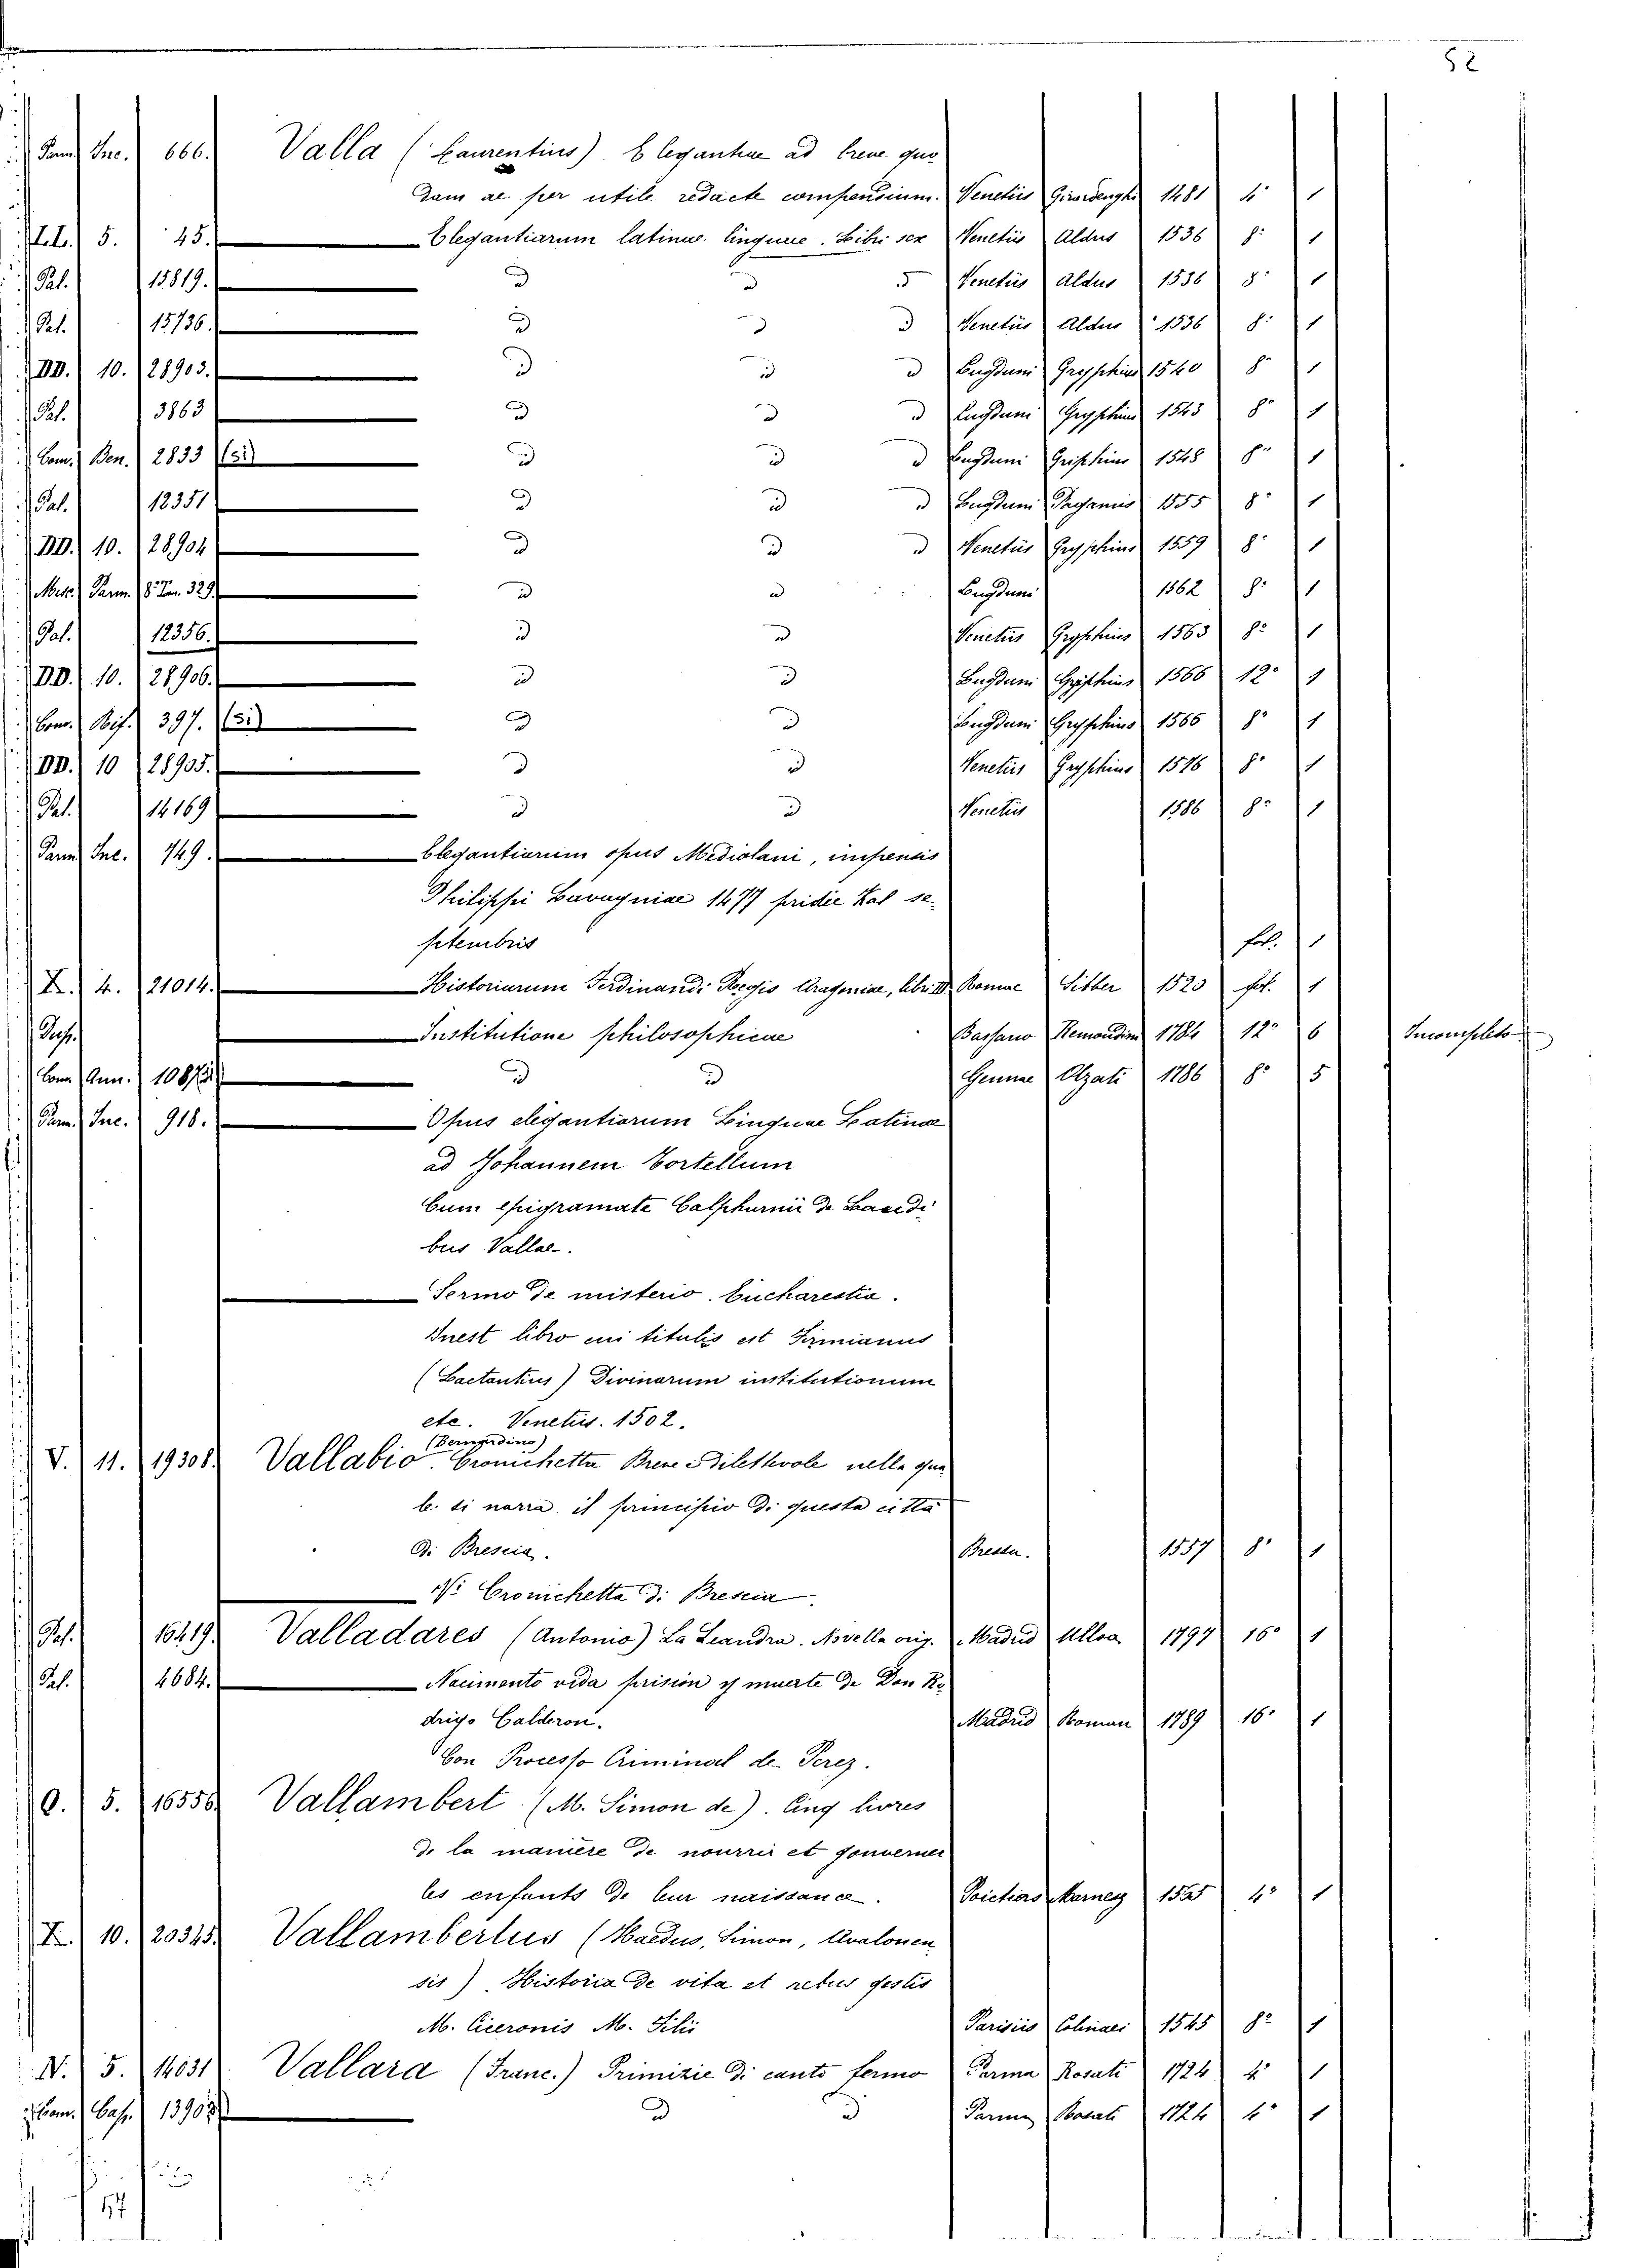 52
Parm. Inc. 666. Valla (Laurentius) Elegantiae ad breve quo
dam ac per utile redacte compendium. Venetiis Girardenghi 1481 4° 1
LL. 5. 45. Elegantiarum latinae linguae. Libri sex Venetiis Aldus 1536 8° 1
Pal. 15819. D D D Venetiis Aldus 1536 8° 1
Pal. 15736. D D D Venetiis Aldus 1536 8° 1
DD. 10. 28903. D D D Lugduni Gryphius 1540 8° 1
Pal. 3863 D D D Lugduni Gryphius 1543 8° 1
Com. Ben. 2833 (si) D D D Lugduni Griphius 1548 8° 1
Pal. 12351 D D D Lugduni Paganus 1555 8° 1
DD. 10. 28904 D D D Venetiis Gryphius 1559 8° 1
Misc. Parm. 8° Tom. 329. D D Lugduni 1562 8° 1
Pal. 12356. D D Venetiis Gryphius 1563 8° 1
DD. 10. 28906. D D Lugduni Griphius 1566 12° 1
Com. Rif. 397. (si) D D Lugduni Gryphius 1566 8° 1
DD. 10 28905. D D Venetiis Gryphius 1576 8° 1
Pal. 14169 D D Venetiis 1586 8° 1
Parm. Inc. 749. Elegantiarum opus Mediolani, impensis
Philippi Lavagniae 1477 pridie Kal se-
ptembris fol. 1
X. 4. 21014. Historiarum Ferdinandi Regis Aragoniae, libri III Romae Silber 1520 fol. 1
Dup. Institutione philosophicae Bassano Remondini 1784 12° 6 Incompleto
Com. Ann. 10872 D D Genuae Olzati 1786 8° 5
Parm. Inc. 918. Opus elegantiarum Linguae Latinae
ad Johannem Tortellum
Cum epigramate Calphurnii de Laudi
bus Vallae.
Sermo de misterio Eucharestia.
Inest libro cui titulis est Firmianus
(Lactantius) Divinarum institutionum
etc. Venetiis. 1502.
(Bernardino)
V. 11. 19308. Vallabio. Cronichetta Breve e dilettevole nella qua
le si narra il principio di questa città
di Brescia. Brescia 1557 8° 1
Vi Cronichetta di Brescia.
Pal. 16419. Valladares (Antonio) La Leandra. Novella orig. Madrid Ulloa 1797 16° 1
Pal. 4684. Nacimento vida prision y muerte de Don Ro
drigo Calderon. Madrid Roman 1789 16° 1
Con Processo Criminal de Perez.
O. 5. 16556. Vallambert (M. Simon de). Cinq livres
de la manière de nourrir et gouverner
les enfants de leur naissance. Poictiers Marnez 4° 1
X. 10. 20345. Vallambertus (Haeduus, Simon, Avalonen
sis). Historia de vita et rebus gestis
M. Ciceronis M. Filii Parisiis Colinaei 1545 8° 1
N. 5. 14031 Vallara (Franc.) Primizie di canto fermo Parma Rosati 1724 4° 1
Com. Cap. 13908 D D Parma Rosati 1724 4° 1
57